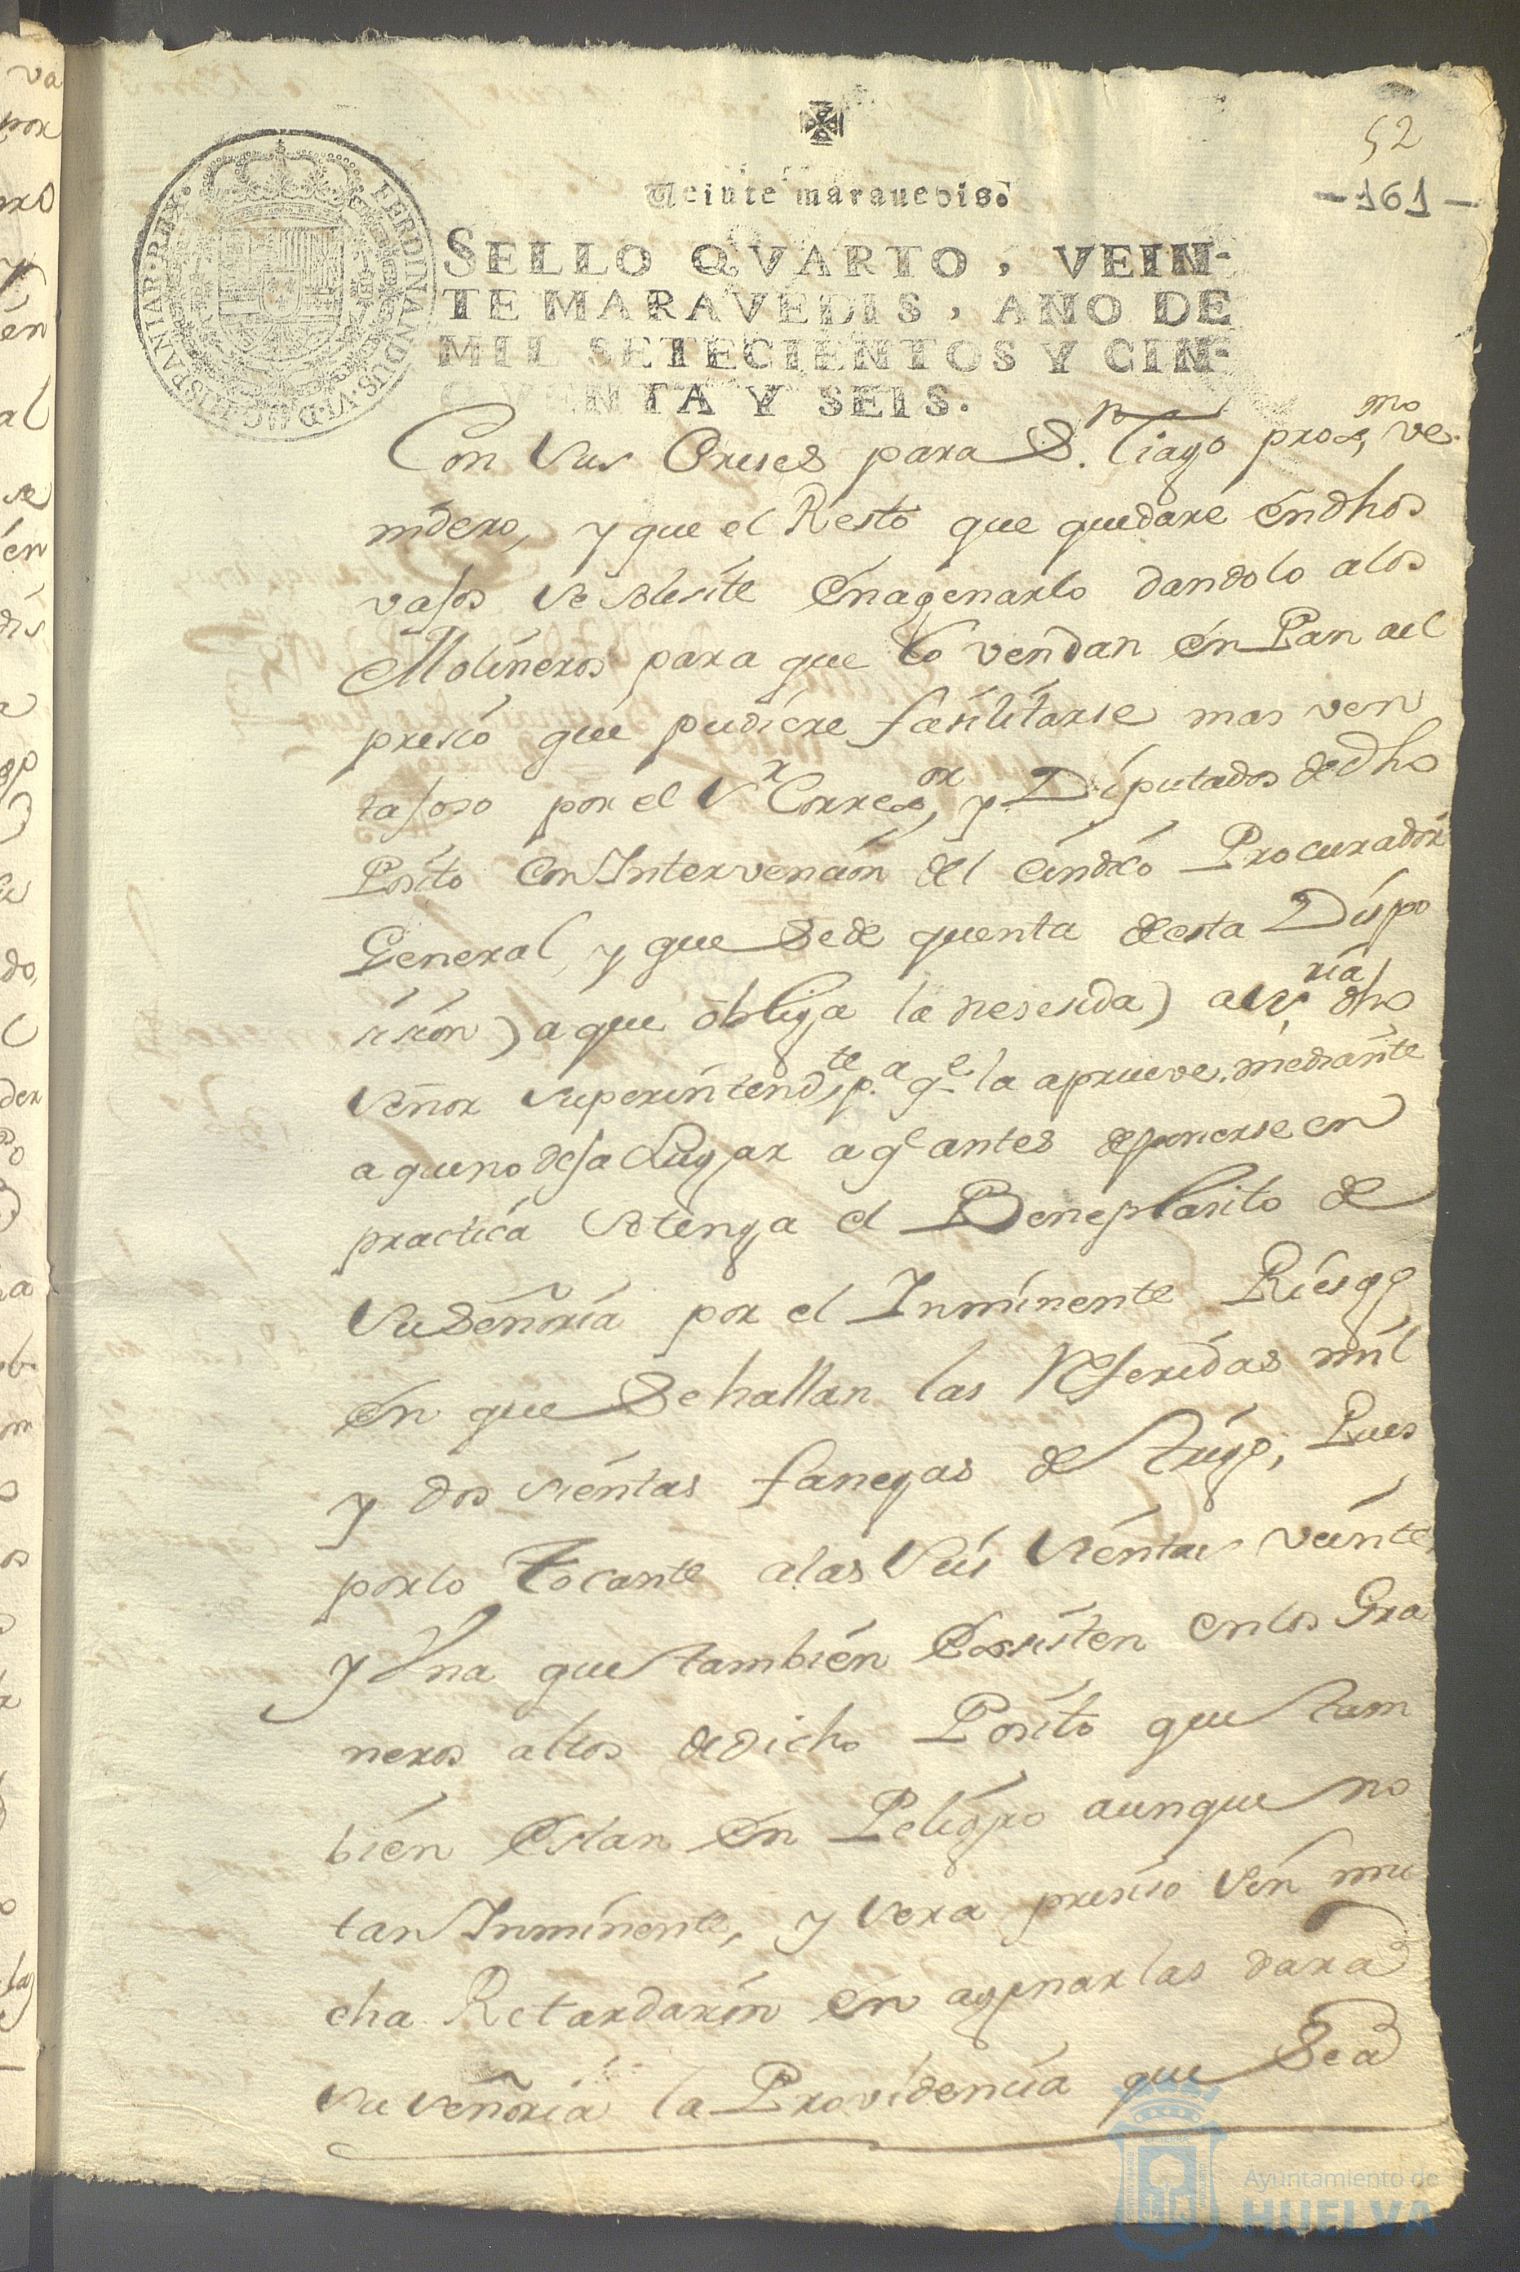 52
-161-
Veinte maravedis.
SELLO QVARTO, VEIN-
TE MARAVEDIS, AÑO DE
MIL SETECIENTOS Y CIN-
CVENTA Y SEIS.
FERDINANDUS·VI·D·G·HISPANIAR·REX·
Con sus Creses para Sn. Tiago proxmo, ve-
nidero, y que el Resto que quedare éndhos
vasos se solisite énagenarlo dandolo alos
Molineros para que lo vendan én Pan al
presio que pudiére fasilitarse mas ven
tajoso por el Sr Corregor, y Diputados dedho
Posito con Intervension del síndico Procurador
General, y que sede quenta deesta Dispo
sision) a que obliga la nesesida) alV.ria dho
señor superintendte, p.a q.e la aprueve, mediante
a queno deja Lugar a qe antes deponerse en
practica setenga el Beneplasito de
su Señoria por el Inminente Riesgo
én que Se hallan las Referidas mil
y dos sientas fanegas de trigo, Pues
porlo tocante alas seis sientas veinte
y Una que también Exsisten enlos Gra
neros altos dedicho Posito que tam
bién Estan én Peligro aunque no
tan Inminente, y sera presiso sin mu
cha Retardasin én agenarlas dara
su señoria la Providencia que Sea
Ayuntamiento de
HUELVA